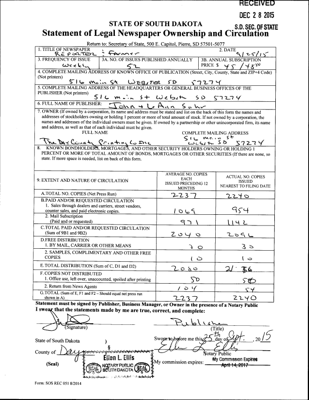 RECEIVED
DEC 28 2015
STATE OF SOUTH DAKOTA
S.D. SEC. OF STATE
Statement of Legal Newspaper Ownership and Circulation
Return to: Secretary of State, 500 E. Capitol, Pierre, SD 57501-5077
1. TITLE OF NEWSPAPER
2. DATE
Reporter & Farmer
3. FREQUENCY OF ISSUE
3A. NO. OF ISSUES PUBLISHED ANNUALLY
3B. ANNUAL SUBSCRIPTION
PRICE $
52
4. COMPLETE MAILING ADDRESS OF KNOWN OFFICE OF PUBLICATION (Street, City, County, State and ZIP+4 Code)
(Not printers)
516 Main St Webster SD 57274
5. COMPLETE MAILING ADDRESS OF THE HEADQUARTERS OR GENERAL BUSINESS OFFICES OF THE
PUBLISHER (Not printers)
516 Main St Webster SD 57274
6. FULL NAME OF PUBLISHER
John & LeAnn Suhr
7. OWNER (If owned by a corporation, its name and address must be stated and list on the back of this form the names and
addresses of stockholders owning or holding 1 percent or more of total amount of stock. If not owned by a corporation, the
names and addresses of the individual owners must be given. If owned by a partnership or other unincorporated firm, its name
and address, as well as that of each individual must be given.
FULL NAME
COMPLETE MAILING ADDRESS
516 Main St
Webster SD 57274
8. KNOWN BONDHOLDERS, MORTGAGEES, AND OTHER SECURITY HOLDERS OWNING OR HOLDING 1
PERCENT OR MORE OF TOTAL AMOUNT OF BONDS, MORTGAGES OR OTHER SECURITIES (If there are none, so
state. If more space is needed, list on back of this form.
9. EXTENT AND NATURE OF CIRCULATION
AVERAGE NO. COPIES
EACH
ISSUED PRECEDING 12
MONTHS
ACTUAL NO. COPIES
ISSUED
NEAREST TO FILING DATE
A. TOTAL NO. COPIES (Net Press Run)
2237
2240
B. PAID AND/OR REQUESTED CIRCULATION
1. Sales through dealers and carriers, street vendors,
counter sales, and paid electronic copies.
1069
954
2. Mail Subscription
(Paid and or requested)
971
1142
C. TOTAL PAID AND/OR REQUESTED CIRCULATION
(Sum of 9B1 and 9B2)
2040
2096
D. FREE DISTRIBUTION
1. BY MAIL, CARRIER OR OTHER MEANS
30
30
2. SAMPLES, COMPLIMENTARY AND OTHER FREE
COPIES
10
10
E. TOTAL DISTRIBUTION (Sum of C, D1 and D2)
2080
F. COPIES NOT DISTRIBUTED
1. Office use, left over, unaccounted, spoiled after printing
50
50
2. Return from News Agents
54
G. TOTAL (Sum of E, F1 and F2 - Should equal net press run
shown in A)
2237
2240
Statement must be signed by Publisher, Business Manager, or Owner in the presence of a Notary Public
I swear that the statements made by me are true, correct, and complete:
Publisher
(Signature)
(Title)
State of South Dakota
Sworn to before me this 25th day of Sept. 2015
County of Day
Ellen L. Ellis
Notary Public
(Seal)
NOTARY PUBLIC
SOUTH DAKOTA
My commission expires:
My Commission Expires
April 14, 2017
Form: SOS REC 051 8/2014